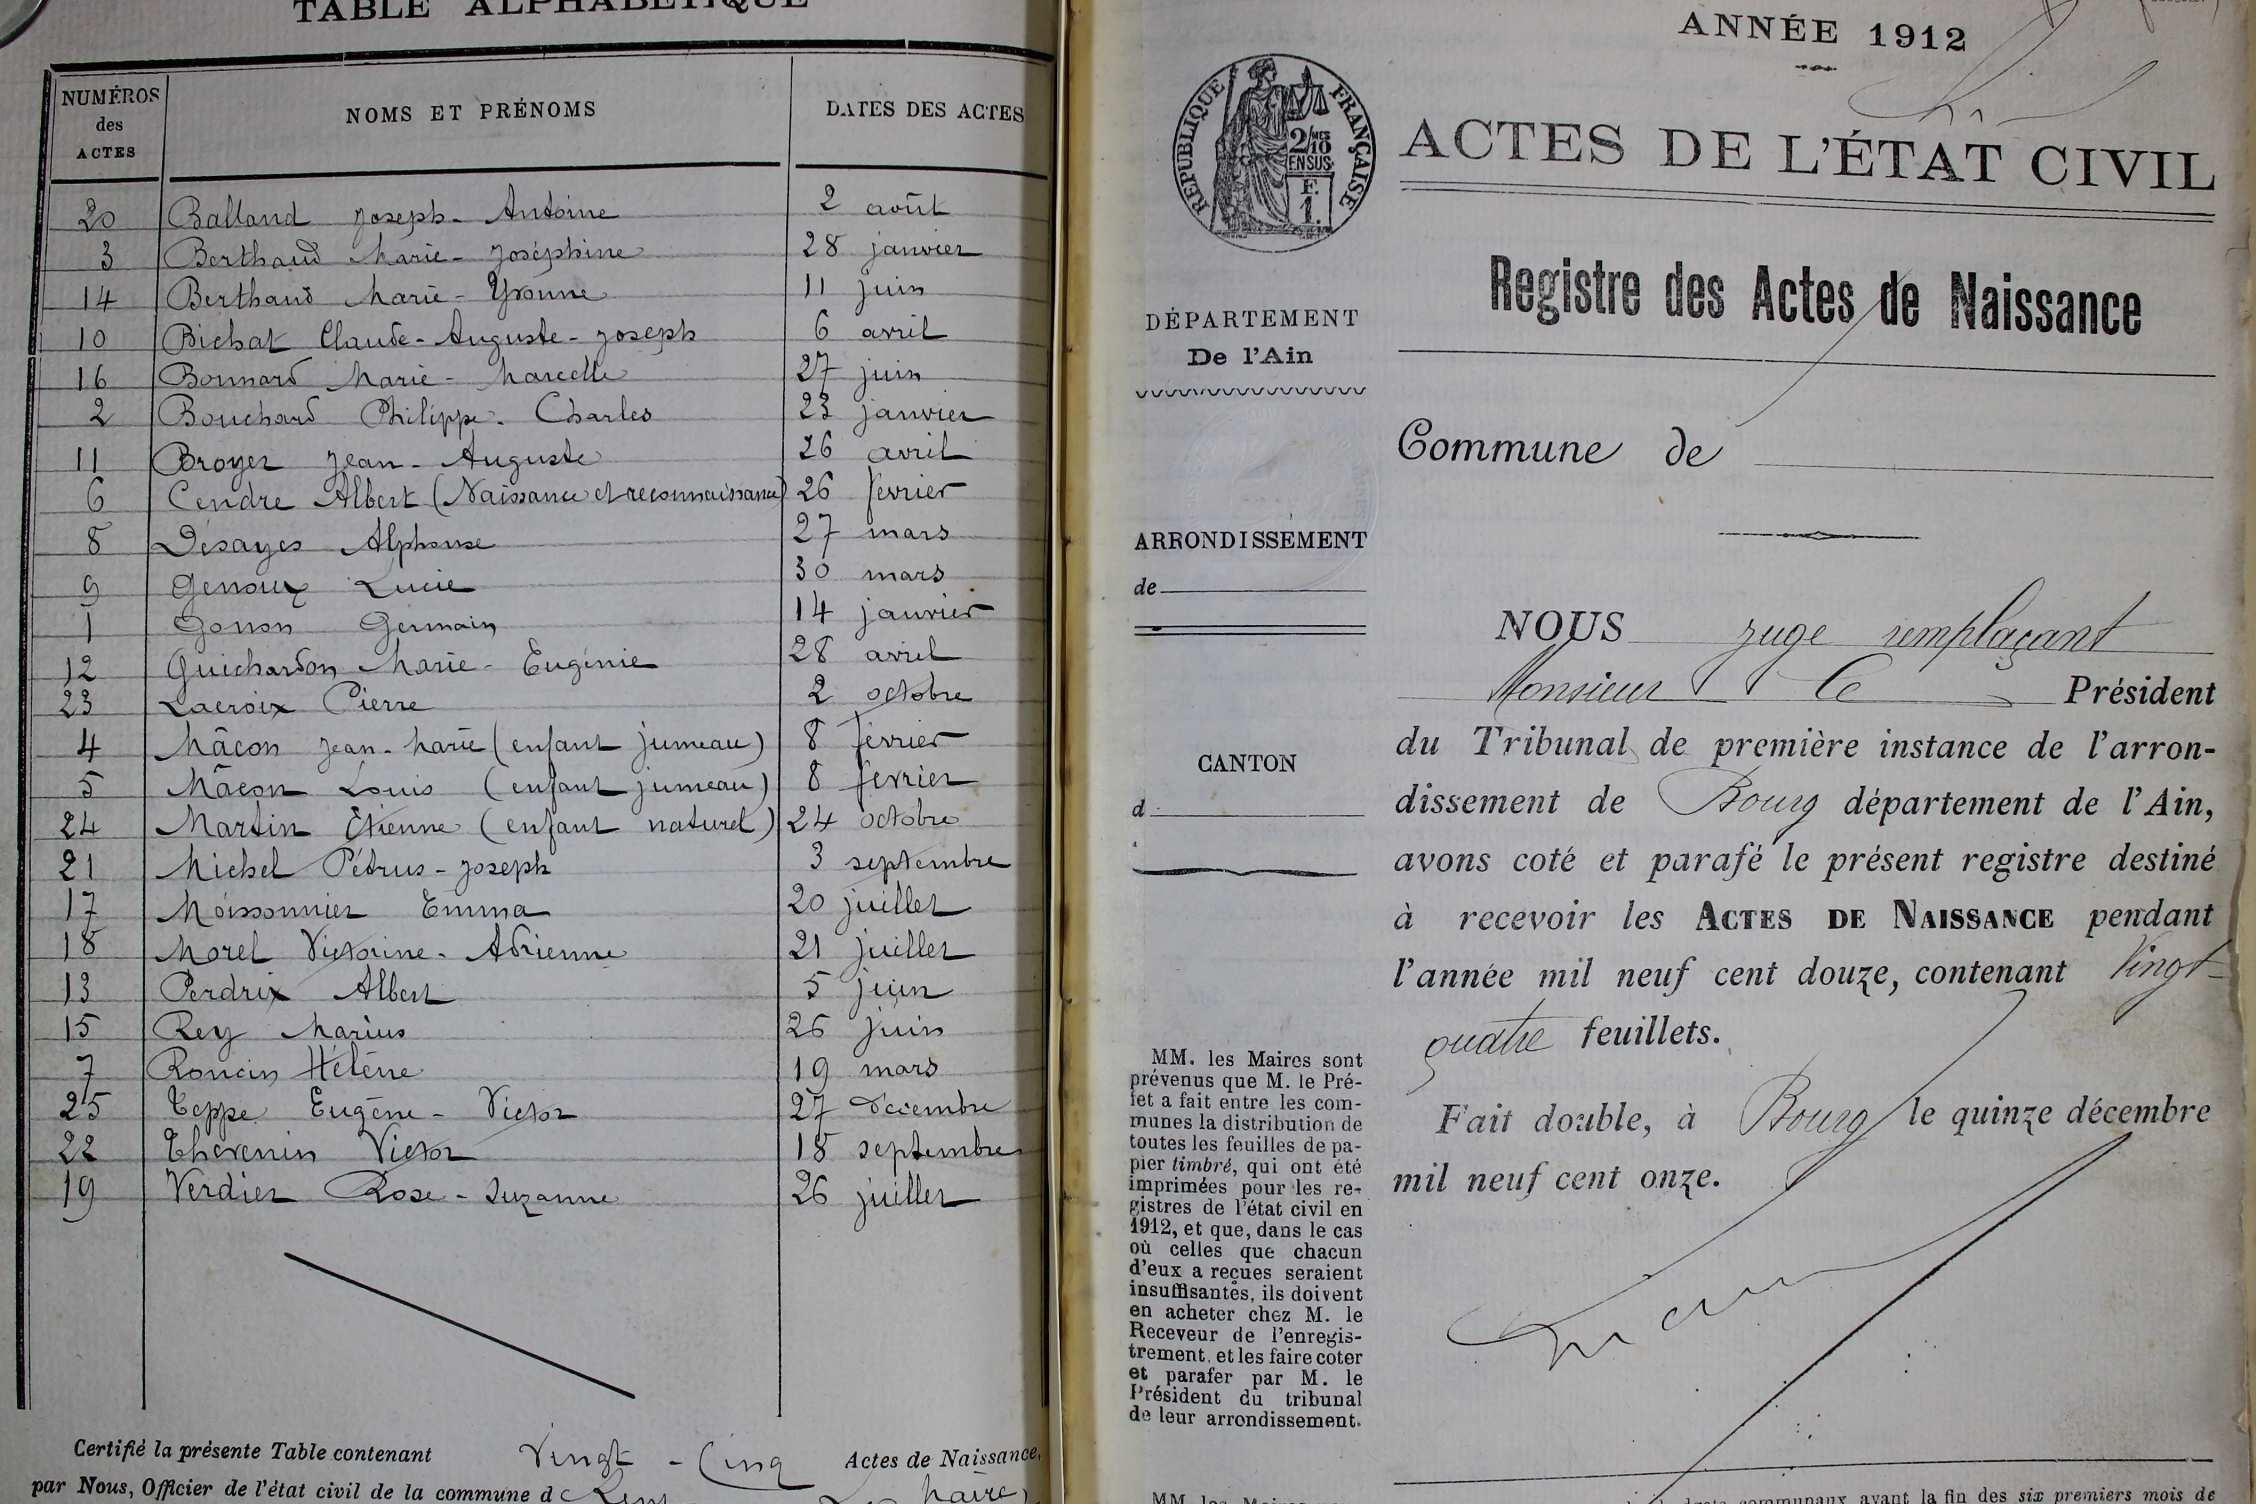 TABLE ALPHABÉTIQUE
NUMÉROS des ACTES
NOMS ET PRÉNOMS
DATES DES ACTES
20 Balland Joseph-Antoine 2 août
3 Berthaud Marie-Joséphine 28 janvier
14 Berthaud Marie-Yvonne 11 juin
10 Bichat Claude-Auguste-Joseph 6 avril
16 Bonnard Marie-Marcelle 27 juin
2 Bouchard Philippe-Charles 23 janvier
11 Broyer Jean-Auguste 26 avril
6 Cendre Albert (Naissance et reconnaissance) 26 février
8 Désayes Alphonse 27 mars
9 Genoux Lucie 30 mars
1 Gonon Germain 14 janvier
12 Guichardon Marie-Eugénie 28 avril
23 Lacroix Pierre 2 octobre
4 Mâcon Jean-Marie (enfant jumeau) 8 février
5 Mâcon Louis (enfant jumeau) 8 février
24 Martin Etienne (enfant naturel) 24 octobre
21 Michel Pétrus-Joseph 3 septembre
17 Moissonnier Emma 20 juillet
18 Morel Victorine-Adrienne 21 juillet
13 Perdrix Albert 5 juin
15 Rey Marius 26 juin
7 Roncin Hélène 19 mars
25 Teppe Eugène-Victor 27 décembre
22 Thevenin Victor 18 septembre
19 Verdier Rose-Suzanne 26 juillet
Certifié la présente Table contenant Vingt-Cinq Actes de Naissance,
par Nous, Officier de l'état civil de la commune d
ANNÉE 1912
RÉPUBLIQUE FRANÇAISE
2/10 MES
EN SUS
F.
1.
ACTES DE L'ÉTAT CIVIL
Registre des Actes de Naissance
DÉPARTEMENT
De l'Ain
Commune de
ARRONDISSEMENT
de
CANTON
d
NOUS juge remplaçant
Monsieur le Président
du Tribunal de première instance de l'arron-
dissement de Bourg département de l'Ain,
avons coté et parafé le présent registre destiné
à recevoir les ACTES DE NAISSANCE pendant
l'année mil neuf cent douze, contenant Vingt-
quatre feuillets.
Fait double, à Bourg le quinze décembre
mil neuf cent onze.
MM. les Maires sont
prévenus que M. le Pré-
fet a fait entre les com-
munes la distribution de
toutes les feuilles de pa-
pier timbré, qui ont été
imprimées pour les re-
gistres de l'état civil en
1912, et que, dans le cas
où celles que chacun
d'eux a reçues seraient
insuffisantes, ils doivent
en acheter chez M. le
Receveur de l'enregis-
trement, et les faire coter
et parafer par M. le
Président du tribunal
de leur arrondissement.
MM. les Maires
communaux avant la fin des six premiers mois de